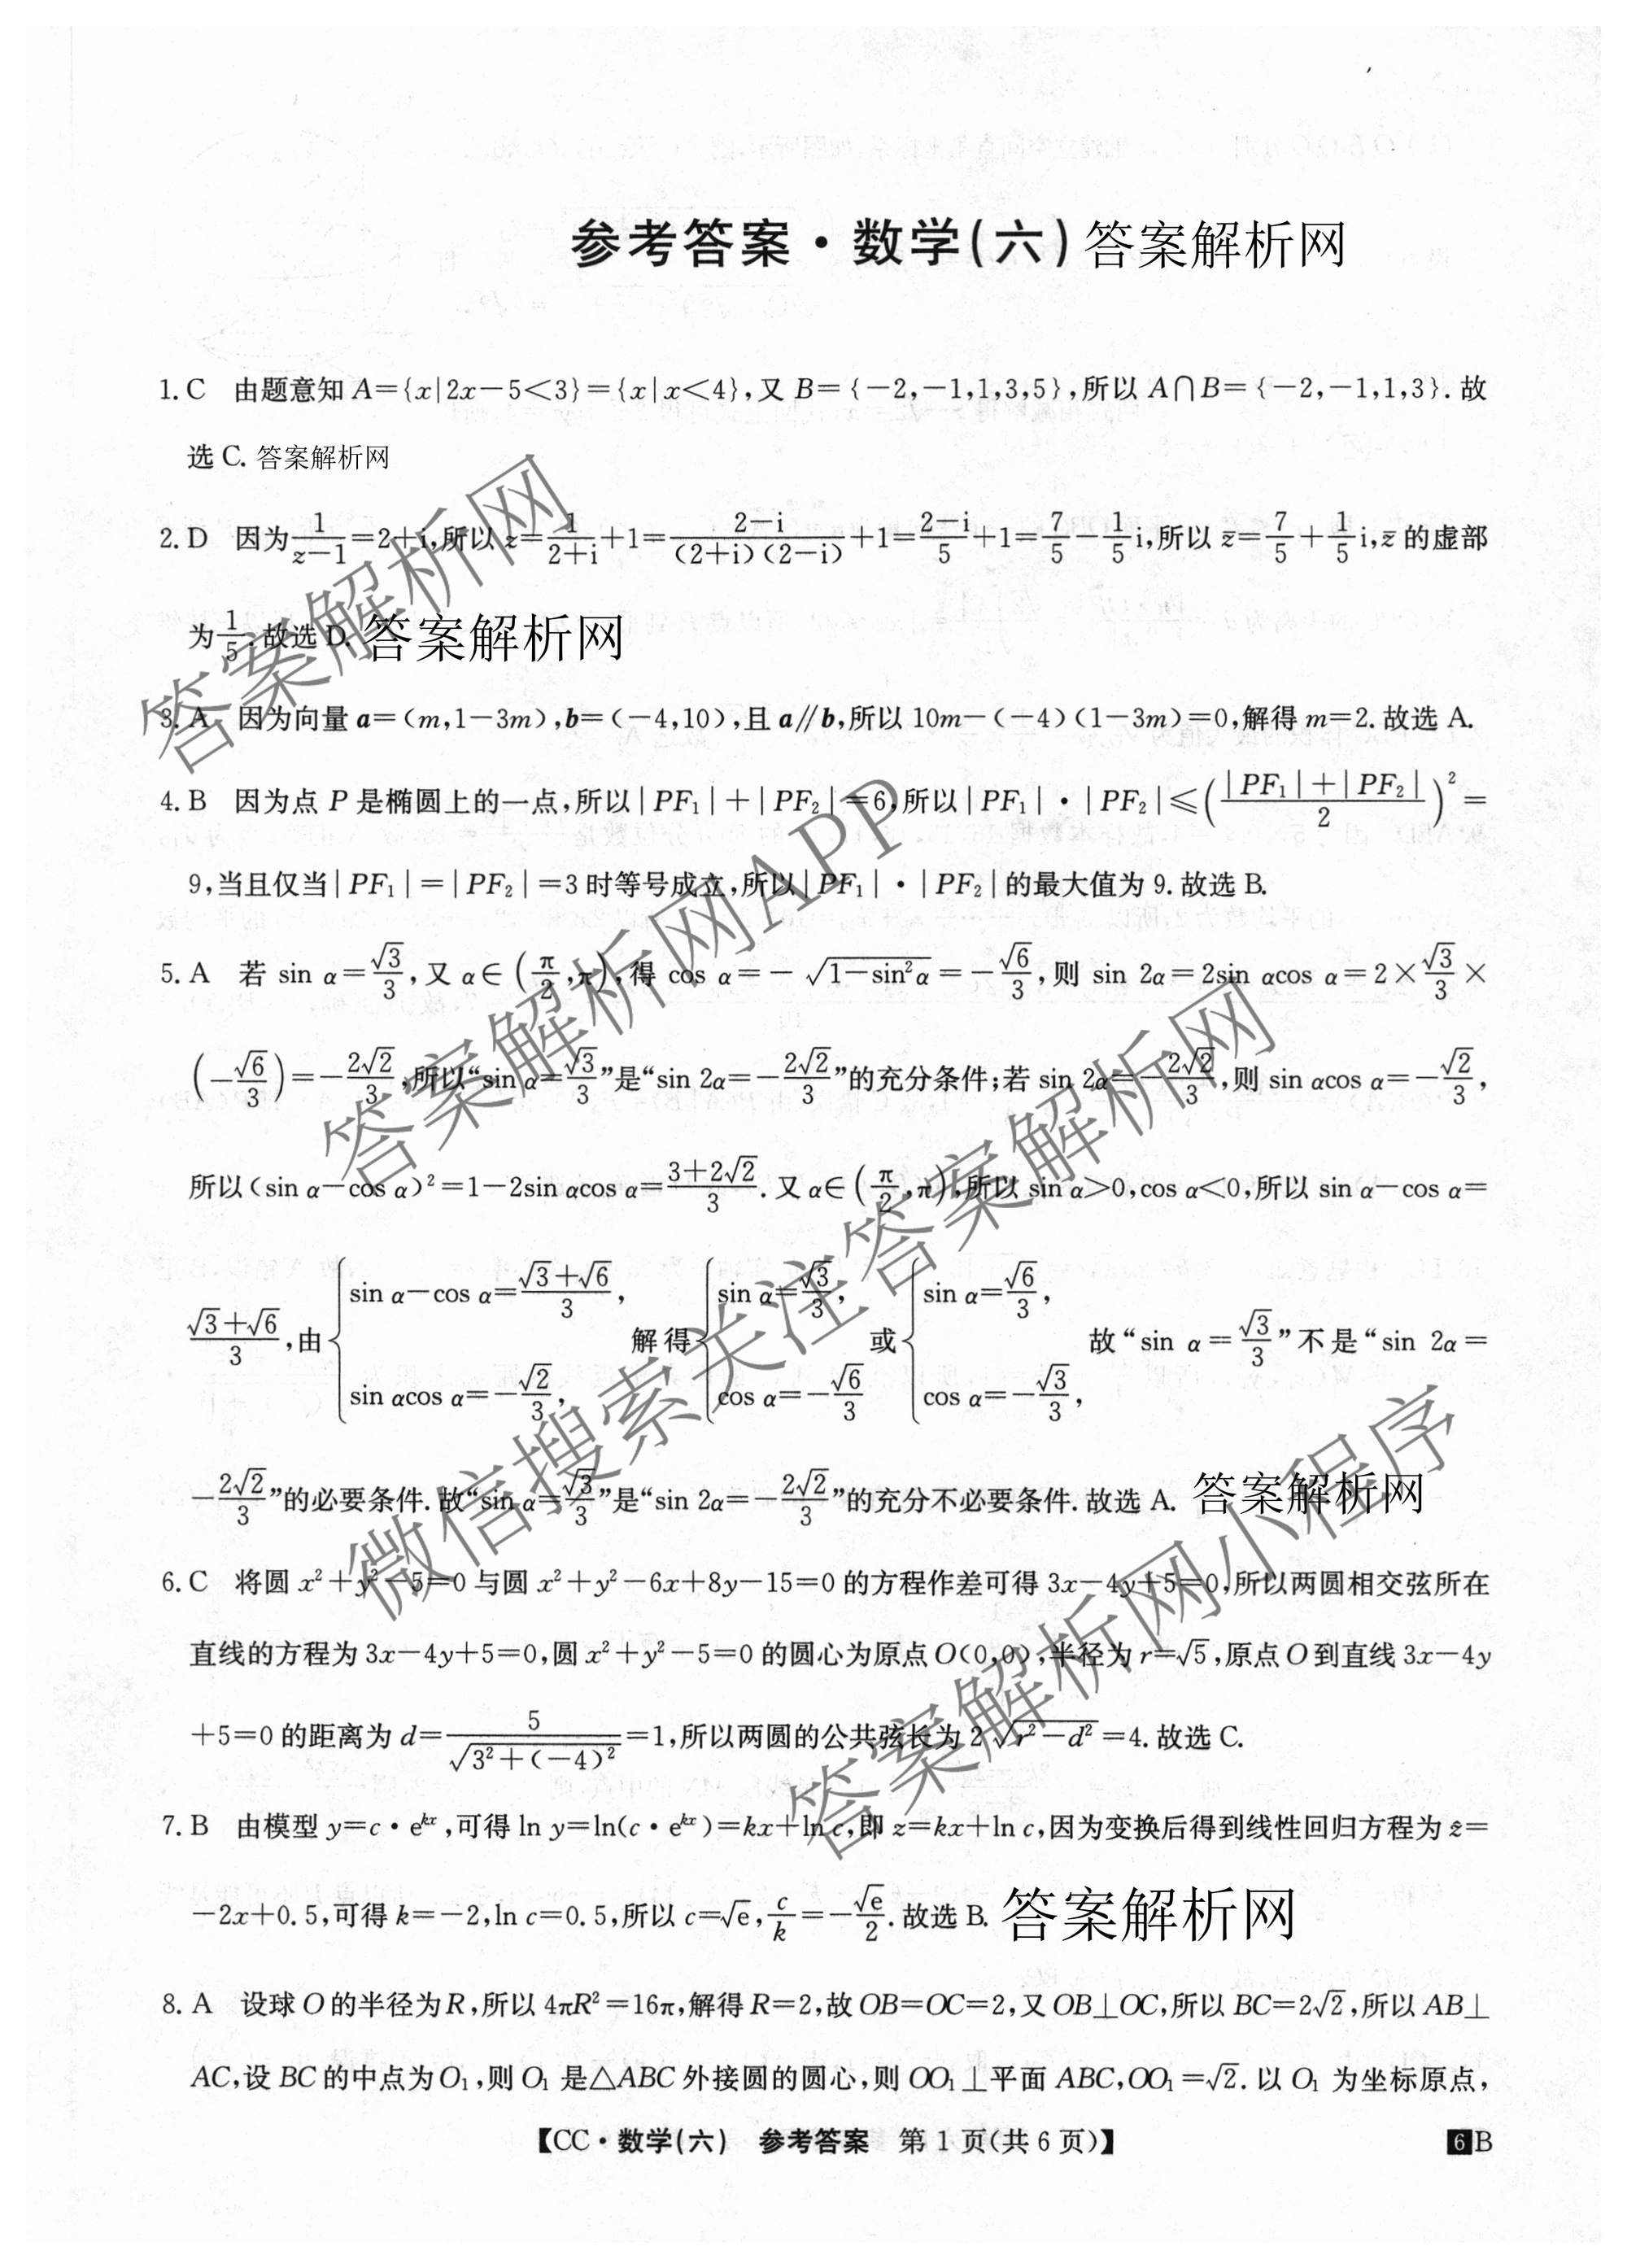 参考答案·数学(六) 答案解析网
1. C 由题意知 A={x|2x-5<3}={x|x<4},又 B={-2,-1,1,3,5},所以 A∩B={-2,-1,1,3}. 故
选 C. 答案解析网
2. D 因为 1/(z-1)=2+i,所以 z=1/(2+i)+1=(2-i)/((2+i)(2-i))+1=(2-i)/5+1=7/5-1/5i,所以 z̄=7/5+1/5i,z̄ 的虚部
为 1/5. 故选 D. 答案解析网
3. A 因为向量 a=(m,1-3m),b=(-4,10),且 a∥b,所以 10m-(-4)(1-3m)=0,解得 m=2. 故选 A.
4. B 因为点 P 是椭圆上的一点,所以|PF₁|+|PF₂|=6,所以|PF₁|·|PF₂|≤((|PF₁|+|PF₂|)/2)²=
9,当且仅当|PF₁|=|PF₂|=3 时等号成立,所以|PF₁|·|PF₂|的最大值为 9. 故选 B.
5. A 若 sin α=√3/3,又 α∈(π/2,π),得 cos α=-√(1-sin²α)=-√6/3,则 sin 2α=2sin αcos α=2×√3/3×
(-√6/3)=-2√2/3,所以“sin α=√3/3”是“sin 2α=-2√2/3”的充分条件;若 sin 2α=-2√2/3,则 sin αcos α=-√2/3,
所以(sin α-cos α)²=1-2sin αcos α=(3+2√2)/3. 又 α∈(π/2,π),所以 sin α>0,cos α<0,所以 sin α-cos α=
(√3+√6)/3,由{sin α-cos α=(√3+√6)/3, sin αcos α=-√2/3, 解得{sin α=√3/3, cos α=-√6/3 或{sin α=√6/3, cos α=-√3/3, 故“sin α=√3/3”不是“sin 2α=
-2√2/3”的必要条件. 故“sin α=√3/3”是“sin 2α=-2√2/3”的充分不必要条件. 故选 A. 答案解析网
6. C 将圆 x²+y²-5=0 与圆 x²+y²-6x+8y-15=0 的方程作差可得 3x-4y+5=0,所以两圆相交弦所在
直线的方程为 3x-4y+5=0,圆 x²+y²-5=0 的圆心为原点 O(0,0),半径为 r=√5,原点 O 到直线 3x-4y
+5=0 的距离为 d=5/√(3²+(-4)²)=1,所以两圆的公共弦长为 2√(r²-d²)=4. 故选 C.
7. B 由模型 y=c·e^(kx),可得 ln y=ln(c·e^(kx))=kx+ln c,即 z=kx+ln c,因为变换后得到线性回归方程为 ẑ=
-2x+0.5,可得 k=-2,ln c=0.5,所以 c=√e,c/k=-√e/2. 故选 B. 答案解析网
8. A 设球 O 的半径为 R,所以 4πR²=16π,解得 R=2,故 OB=OC=2,又 OB⊥OC,所以 BC=2√2,所以 AB⊥
AC,设 BC 的中点为 O₁,则 O₁ 是△ABC 外接圆的圆心,则 OO₁⊥平面 ABC,OO₁=√2. 以 O₁ 为坐标原点,
【CC·数学(六) 参考答案 第 1 页(共 6 页)】 6 B
答案解析网
答案解析网APP
微信搜索关注答案解析网
答案解析网小程序